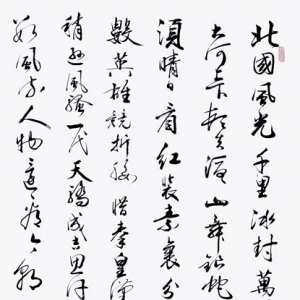 北國風光千里冰封萬
大河上下頓失滔山舞銀蛇
須晴日看紅裝素裹分
數英雄競折腰惜秦皇漢
稍遜風騷一代天驕成吉思汗
數風流人物還看今朝